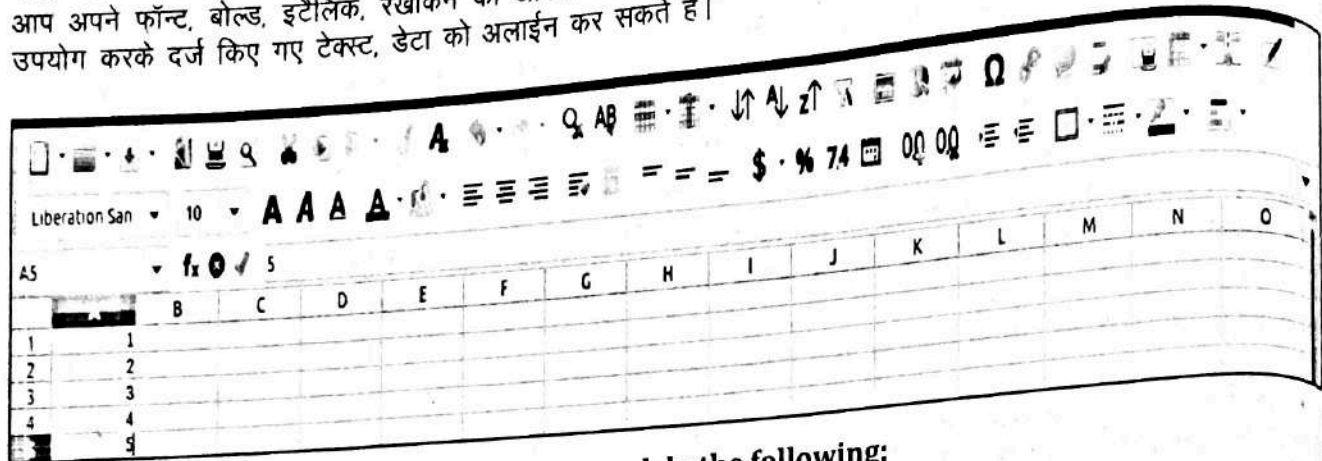 आप अपने फॉन्ट, बोल्ड, इटैलिक, रेखांकन
उपयोग करके दर्ज किए गए टेक्स्ट, डेटा को अलाईन कर सकते हैं।
Liberation San 10 A A A A $ % 7.4
A5 fx 5
B C D E F G H I J K L M N O
1 1
2 2
3 3
4 4
5
the following: